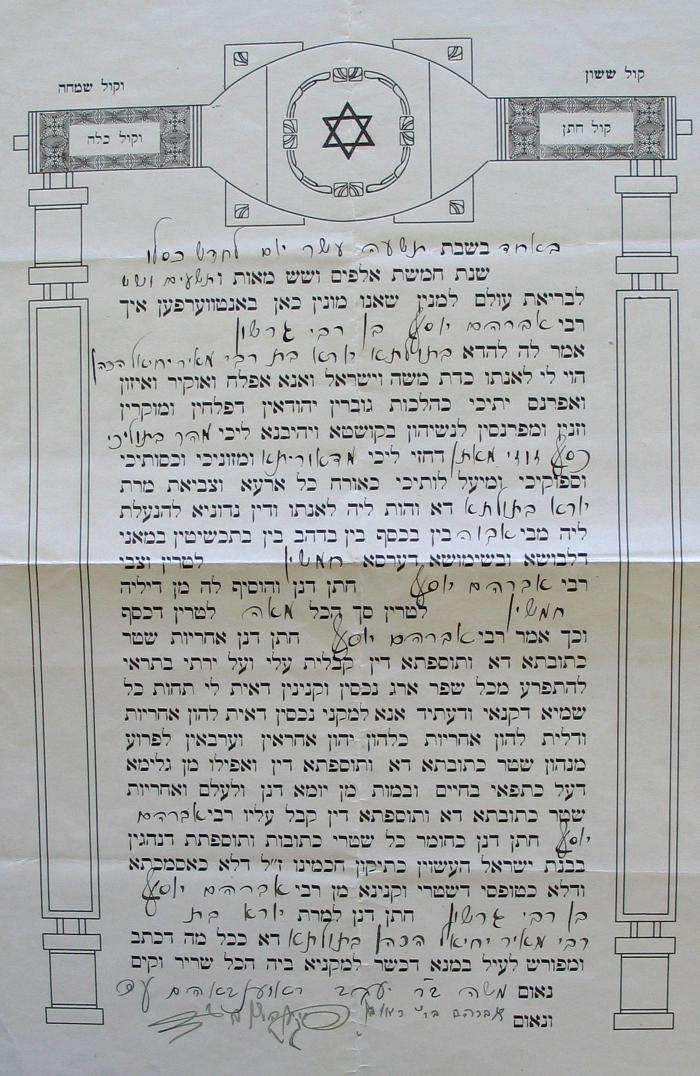 קול ששון
וקול שמחה
קול חתן
וקול כלה
באחד בשבת תשעה עשר יום לחדש כסלו
שנת חמשת אלפים ושש מאות ותשעים ושש
לבריאת עולם למנין שאנו מונין כאן באנטווערפען איך
רבי אברהם יוסף בן רבי גרשון
אמר לה להדא בתולתא יורא בת רבי מאיר יחיאל הכהן
הוי לי לאנתו כדת משה וישראל ואנא אפלח ואוקיר ואיזון
ואפרנס יתיכי כהלכות גוברין יהודאין דפלחין ומוקרין
וזנין ומפרנסין לנשיהון בקושטא ויהיבנא ליכי מהר בתוליכי
כסף זוזי מאתן דחזי ליכי מדאוריתא ומזוניכי וכסותיכי
וספוקיכי ומיעל לותיכי כאורח כל ארעא וצביאת מרת
יורא בתולתא דא והות ליה לאנתו ודין נדוניא להנעלת
ליה מבי אבוה בין בכסף בין בדהב בין בתכשיטין במאני
דלבושא ובשימושא דערסא חמשין לטרין וצבי
רבי אברהם יוסף חתן דנן והוסיף לה מן דיליה
חמשין לטרין סך הכל מאה לטרין דכסף
וכך אמר רבי אברהם יוסף חתן דנן אחריות שטר
כתובתא דא ותוספתא דין קבלית עלי ועל ירתי בתראי
להתפרע מכל שפר ארג נכסין וקנינין דאית לי תחות כל
שמיא דקנאי ודעתיד אנא למקני נכסין דאית להון אחריות
ודלית להון אחריות כלהון יהון אחראין וערבאין לפרוע
מנהון שטר כתובתא דא ותוספתא דין ואפילו מן גלימא
דעל כתפאי בחיים ובמות מן יומא דנן ולעלם ואחריות
שטר כתובתא דא ותוספתא דין קבל עליו רבי אברהם
יוסף חתן דנן כחומר כל שטרי כתובות ותוספתת דנהגין
בבנת ישראל העשוין כתיקון חכמינו ז״ל דלא כאסמכתא
ודלא כטופסי דשטרי וקנינא מן רבי אברהם יוסף
בן רבי גרשון חתן דנן למרת יורא בת
רבי מאיר יחיאל הכהן בתולתא דא ככל מה דכתב
ומפורש לעיל במנא דכשר למקניא ביה הכל שריר וקים
נאום משה ב״ר יעקב
ונאום אברהם